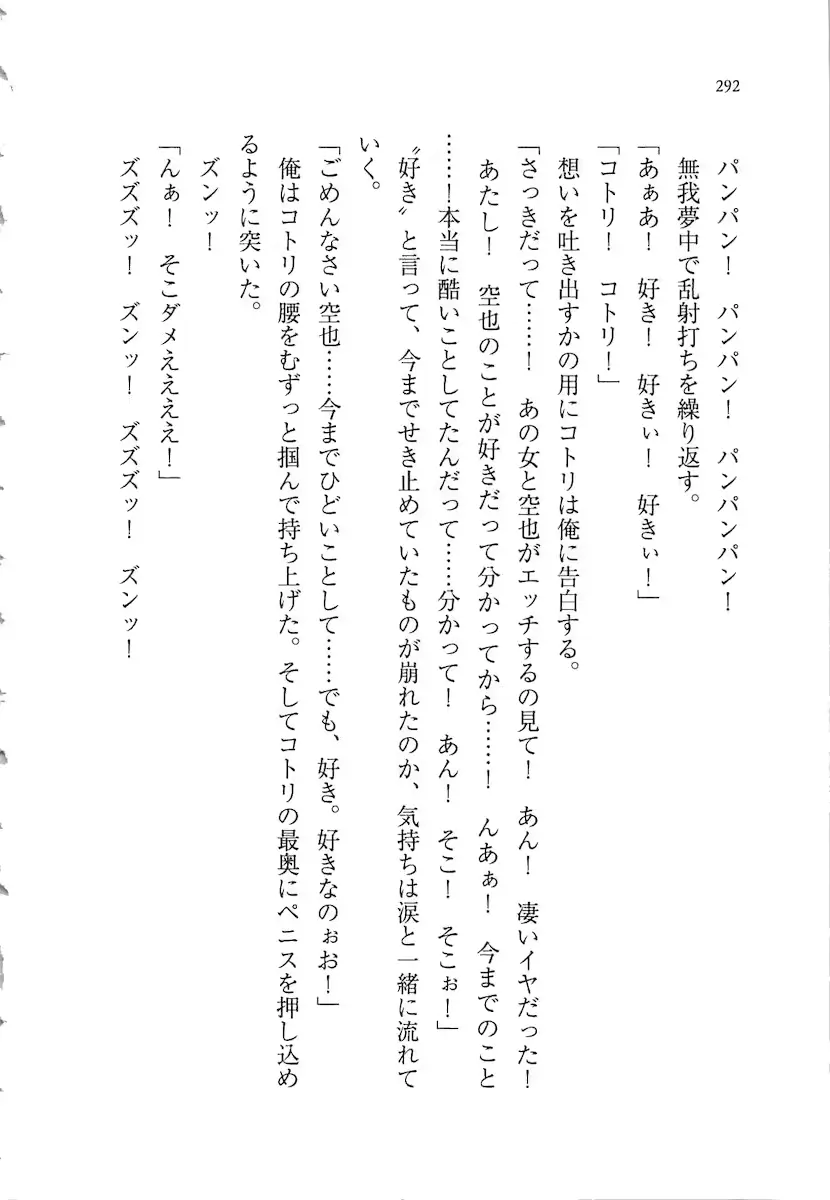 292
パンパン！　パンパン！　パンパンパン！
無我夢中で乱射打ちを繰り返す。
「あぁあ！　好き！　好きぃ！　好きぃ！」
「コトリ！　コトリ！」
想いを吐き出すかの用にコトリは俺に告白する。
「さっきだって……！　あの女と空也がエッチするの見て！　あん！　凄いイヤだった！
あたし！　空也のことが好きだって分かってから……！　んあぁ！　今までのこと
……！本当に酷いことしてたんだって……分かって！　あん！　そこ！　そこぉ！」
〝好き〟と言って、今までせき止めていたものが崩れたのか、気持ちは涙と一緒に流れて
いく。
「ごめんなさい空也……今までひどいことして……でも、好き。好きなのぉお！」
俺はコトリの腰をむずっと掴んで持ち上げた。そしてコトリの最奥にペニスを押し込め
るように突いた。
ズンッ！
「んぁ！　そこダメええええ！」
ズズズッ！　ズンッ！　ズズズッ！　ズンッ！